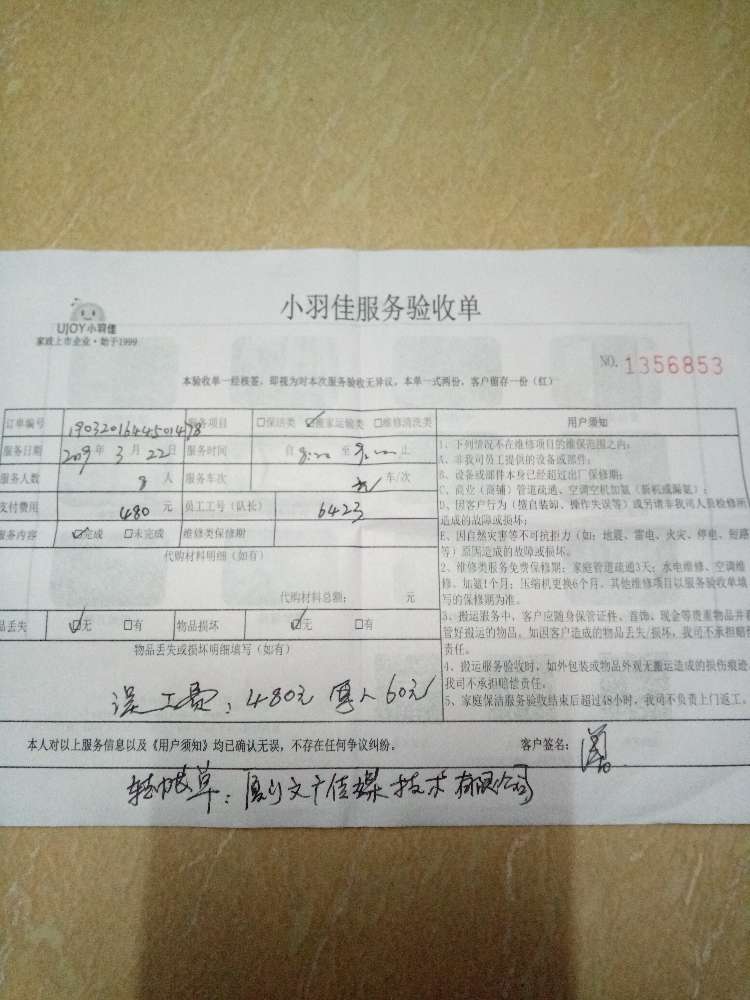 小羽佳服务验收单
UJOY小羽佳
家政上市企业·始于1999
NO. 1356853
本验收单一经核签,即视为对本次服务验收无异议,本单一式两份,客户留存一份(红)
订单编号 服务项目 □保洁类 ☑搬家运输类 □维修清洗类
服务日期 2019年3月22日 服务时间 自 至 止
服务人数 8 人 服务车次 车/次
支付费用 480 元 员工工号(队长) 6423
服务内容 ☑完成 □未完成 维修类保修期
代购材料明细(如有)
代购材料总额: 元
品丢失 ☑无 □有 物品损坏 ☑无 □有
物品丢失或损坏明细填写(如有)
误工费:480元 每人60元
用户须知
1、下列情况不在维修项目的维保范围之内:
A、非我司员工提供的设备或部件;
B、设备或部件本身已经超过出厂保修期;
C、商业(商铺)管道疏通、空调空机加氟(新机或漏氟);
D、因客户行为(擅自装卸、操作失误等)或另请非我司人员检修所
造成的故障或损坏;
E、因自然灾害等不可抗拒力(如:地震、雷电、火灾、停电、短路
等)原因造成的故障或损坏。
2、维修类服务免费保修期:家庭管道疏通3天;水电维修、空调维
修、加氟1个月;压缩机更换6个月。其他维修项目以服务验收单填
写的保修期为准。
3、搬运服务中,客户应随身保管证件、首饰、现金等贵重物品并看
管好搬运的物品。如因客户造成的物品丢失/损坏,我司不承担赔偿
责任。
4、搬运服务验收时,如外包装或物品外观无搬运造成的损伤痕迹,
我司不承担赔偿责任。
5、家庭保洁服务验收结束后超过48小时,我司不负责上门返工。
本人对以上服务信息以及《用户须知》均已确认无误,不存在任何争议纠纷。 客户签名:
转帐单:厦门文广传媒技术有限公司